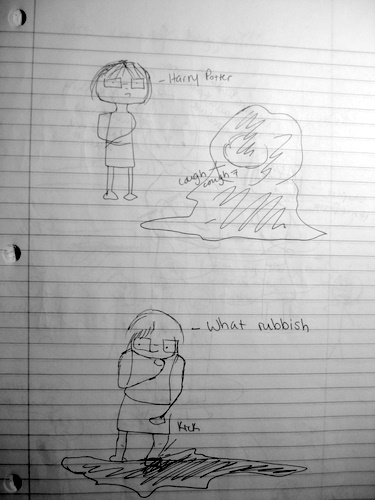 Harry Potter
cough
cough
What rubbish
Kick